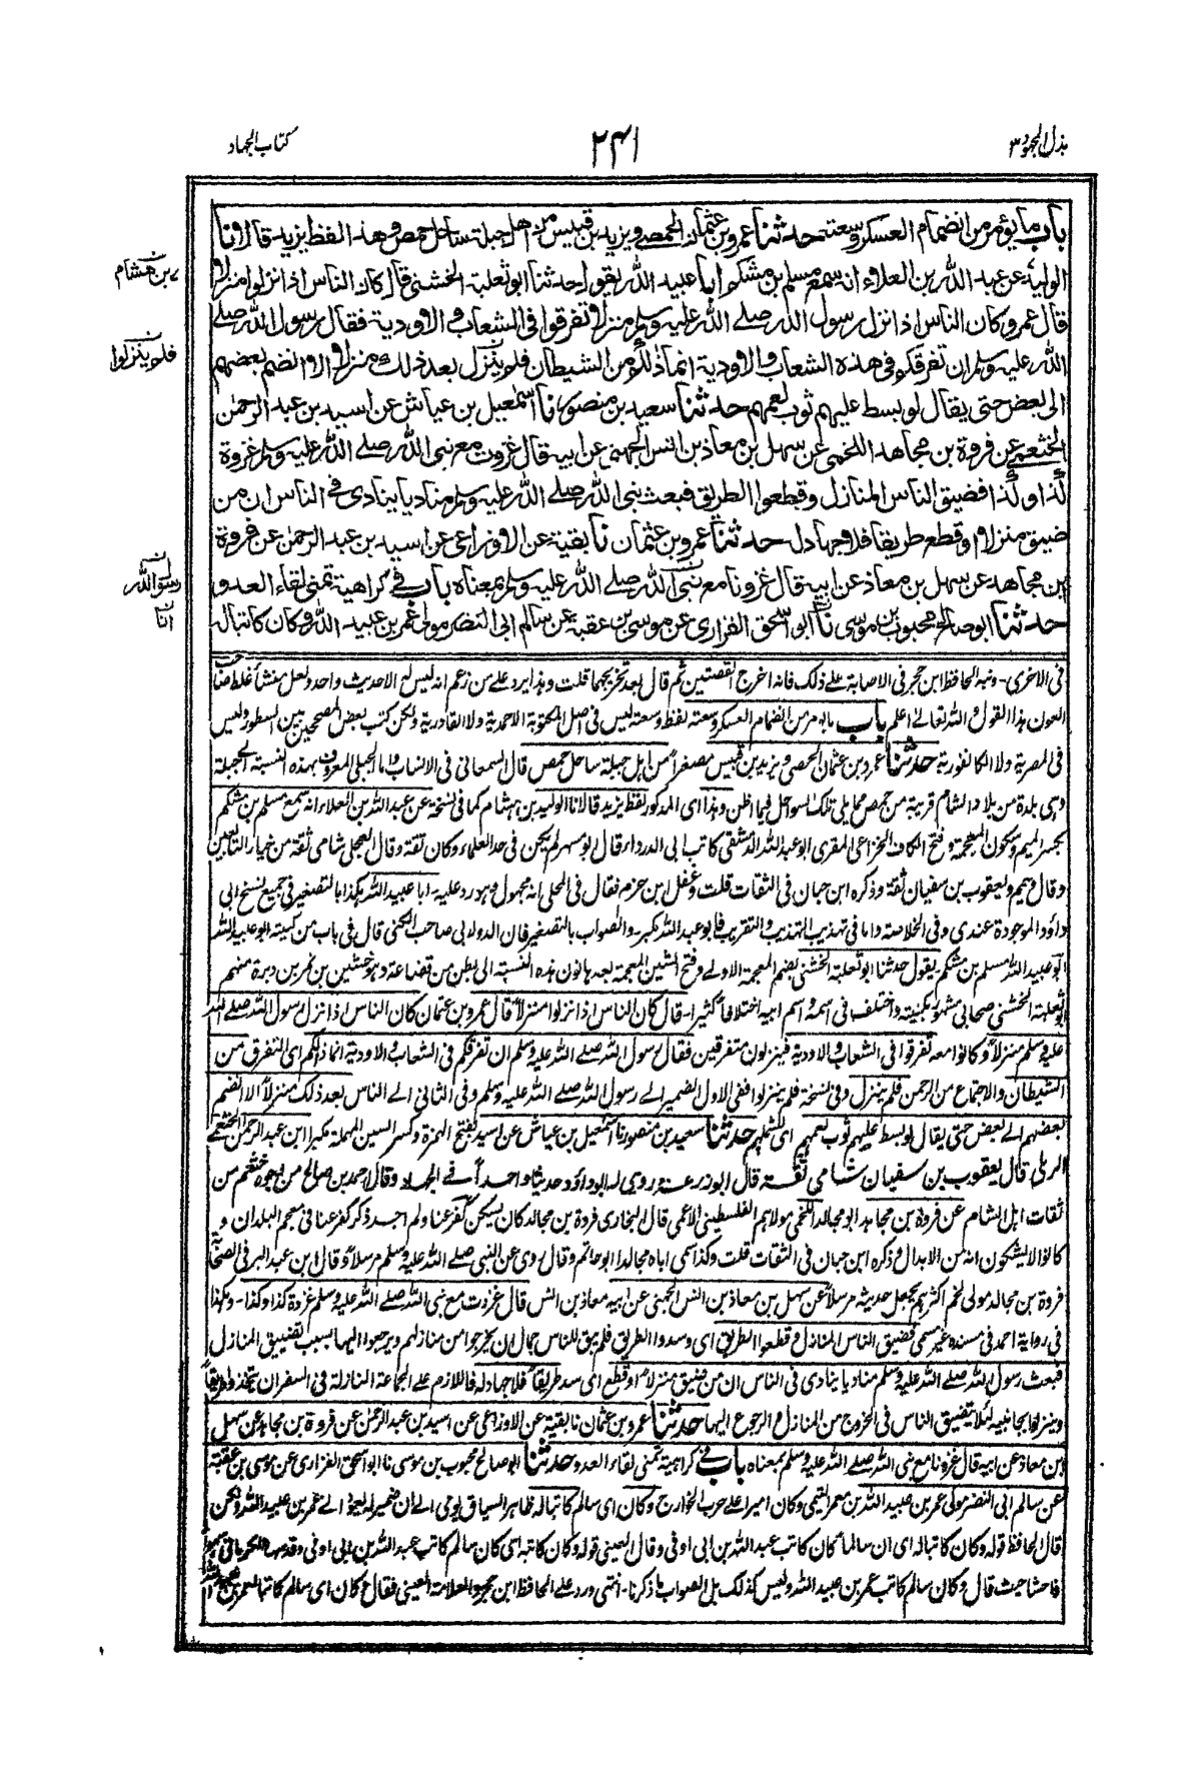 بذل المجهود ٣
٢٤١
كتاب الجهاد
باب ما يؤمر من انضمام العسكر وسعته حدثنا عمرو بن عثمان الحمصي ويزيد بن قبيس من اهل جبلة ساحل حمص وهذا لفظ يزيد قالا نا
الوليد عن عبد الله بن العلاء انه سمع مسلم بن مشكم ابا عبيد الله يقول حدثنا ابو ثعلبة الخشني قال كان الناس اذا نزلوا منزلا
قال عمرو كان الناس اذا نزل رسول الله صلى الله عليه وسلم منزلا تفرقوا في الشعاب والاودية فقال رسول الله صلى
الله عليه وسلم ان تفرقكم في هذه الشعاب والاودية انما ذلكم من الشيطان فلم ينزل بعد ذلك منزلا الا انضم بعضهم
الى بعض حتى يقال لو بسط عليهم ثوب لعمهم حدثنا سعيد بن منصور نا اسمعيل بن عياش عن اسيد بن عبد الرحمن
الخثعمي عن فروة بن مجاهد اللخمي عن سهل بن معاذ بن انس الجهني عن ابيه قال غزوت مع نبي الله صلى الله عليه وسلم غزوة
كذا وكذا فضيق الناس المنازل وقطعوا الطريق فبعث نبي الله صلى الله عليه وسلم مناديا ينادي في الناس ان من
ضيق منزلا او قطع طريقا فلا جهاد له حدثنا عمرو بن عثمان نا بقية عن الاوزاعي عن اسيد بن عبد الرحمن عن فروة
ابن مجاهد عن سهل بن معاذ عن ابيه قال غزونا مع نبي الله صلى الله عليه وسلم بمعناه باب في كراهية تمنى لقاء العدو
حدثنا ابو صالح محبوب بن موسى نا ابو اسحق الفزاري عن موسى بن عقبة عن سالم ابي النضر مولى عمر بن عبيد الله وكان كاتبا له
بن هشام
فلم ينزلوا
رسول الله
انا
في الاخرى - ونبه الحافظ ابن حجر في الاصابة على ذلك فانه اخرج القصتين ثم قال بعد تخريجهما قلت وهذا يرد على من زعم انه ليس له الا حديث واحد ولعل منشأ غلط صاحب
العون هذا القول والله تعالى اعلم باب ما يؤمر من انضمام العسكر وسعته لفظ وسعته ليس في اصل المكتوبة الاحمدية ولا القادرية ولكن كتب بعض المصححين بين السطور وليس
في المصرية ولا الكانفورية حدثنا عمرو بن عثمان الحمصي ويزيد بن قبيس مصغرا من اهل جبلة ساحل حمص قال السمعاني في الانساب واما الجبلي المعروف بهذه النسبة الجبلة
وهي بلدة من بلاد الشام قريبة من حمص مما يلي تلك السواحل فيما اظن وهذا اي المذكور لفظ يزيد قالا نا الوليد بن هشام كما في نسخة عن عبد الله بن العلاء انه سمع مسلم بن مشكم
بكسر الميم وسكون المعجمة وفتح الكاف الخزاعي المقري ابو عبيد الله الدمشقي كاتب ابي الدرداء قال ابو مسهر لم يكن في حد العلماء وكان ثقة وقال العجلي شامي ثقة من خيار التابعين
وقال دحيم ويعقوب بن سفيان ثقة وذكره ابن حبان في الثقات قلت وغفل ابن حزم فقال في المحلى انه مجهول وهو رد عليه ابا عبيد الله هكذا بالتصغير في جميع نسخ ابي
داؤد الموجودة عندي وفي الخلاصة واما في تهذيب التهذيب والتقريب فابو عبد الله مكبر - والصواب بالتصغير فان الدولابي صاحب الكنى قال في باب من كنيته ابو عبيد الله
ابو عبيد الله مسلم بن مشكم يقول حدثنا ابو ثعلبة الخشني بضم المعجمة الاولى وفتح الشين المعجمة بعدها نون هذه النسبة الى بطن من قضاعة وهو خشين بن نمر بن وبرة منهم
ابو ثعلبة الخشني صحابي مشهور بكنيته واختلف في اسمه واسم ابيه اختلافا كثيرا - قال كان الناس اذا نزلوا منزلا قال عمرو بن عثمان كان الناس اذا نزل رسول الله صلى الله
عليه وسلم منزلا وكانوا معه تفرقوا في الشعاب والاودية فينزلون متفرقين فقال رسول الله صلى الله عليه وسلم ان تفرقكم في الشعاب والاودية انما ذلكم اي التفرق من
الشيطان والاجتماع من الرحمن فلم ينزل وفي نسخة فلم ينزلوا ففي الاول الضمير الى رسول الله صلى الله عليه وسلم وفي الثاني الى الناس بعد ذلك منزلا الا انضم
بعضهم الى بعض حتى يقال لو بسط عليهم ثوب لعمهم اي لشملهم حدثنا سعيد بن منصور نا اسمعيل بن عياش عن اسيد بفتح الهمزة وكسر السين المهملة مكبرا ابن عبد الرحمن الخثعمي
الرملي قال يعقوب بن سفيان شامي ثقة قال ابو زرعة روى له ابو داؤد حديثا واحدا في الجهاد وقال احمد بن صالح من وجوه خثعم من
ثقات اهل الشام عن فروة بن مجاهد ابو مجالد اللخمي مولاهم الفلسطيني الاعمى قال البخاري فروة بن مجالد كان يسكن كفر عنا ولم اجد ذكر كفر عنا في معجم البلدان و
كانوا لا يشكون انه من الابدال وذكره ابن حبان في الثقات قلت وكذا سمى اباه مجالدا ابو حاتم وقال روى عن النبي صلى الله عليه وسلم مرسلا وقال ابن عبد البر في الصحابة
فروة بن مجالد مولى لخم اكثرهم يجعل حديثه مرسلا عن سهل بن معاذ بن انس الجهني عن ابيه معاذ بن انس قال غزوت مع نبي الله صلى الله عليه وسلم غزوة كذا وكذا - وهكذا
في رواية احمد في مسنده غير مسمى فضيق الناس المنازل وقطعوا الطريق اي وسدوا الطريق فلم يبق للناس مجال ان يخرجوا من منازلهم ويرجعوا اليها بسبب تضييق المنازل
فبعث رسول الله صلى الله عليه وسلم مناديا ينادي في الناس ان من ضيق منزلا او قطع اي سد طريقا فلا جهاد له فاللازم على الجماعة النازلة في السفر ان يتخذوا طريقا
وينزلوا بجانبيه لئلا تضيق الناس في الخروج من المنازل والرجوع اليها حدثنا عمرو بن عثمان نا بقية عن الاوزاعي عن اسيد بن عبد الرحمن عن فروة بن مجاهد عن سهل
ابن معاذ عن ابيه قال غزونا مع نبي الله صلى الله عليه وسلم بمعناه باب في كراهية تمنى لقاء العدو حدثنا ابو صالح محبوب بن موسى نا ابو اسحق الفزاري عن موسى بن عقبة
عن سالم ابي النضر مولى عمر بن عبيد الله بن معمر التيمي وكان اميرا على حرب الخوارج وكان اي سالم كاتبا له ظاهر السياق يومي الى ان ضمير له يعود الى عمر بن عبيد الله ولكن
قال الحافظ قوله وكان كاتبا له اي ان سالما كان كاتب عبد الله بن ابي اوفى وقال العيني قوله وكان كاتبه اي كان سالم كاتب عبد الله بن ابي اوفى وقد سها الكرماني سهوا
فاحشا حيث قال وكان سالم كاتب عمر بن عبيد الله وليس كذلك بل الصواب ما ذكرنا - انتهى ورد على الحافظ ابن حجر والعلامة العيني فقال وكان اي سالم كاتبا لعمر بن عبيد الله